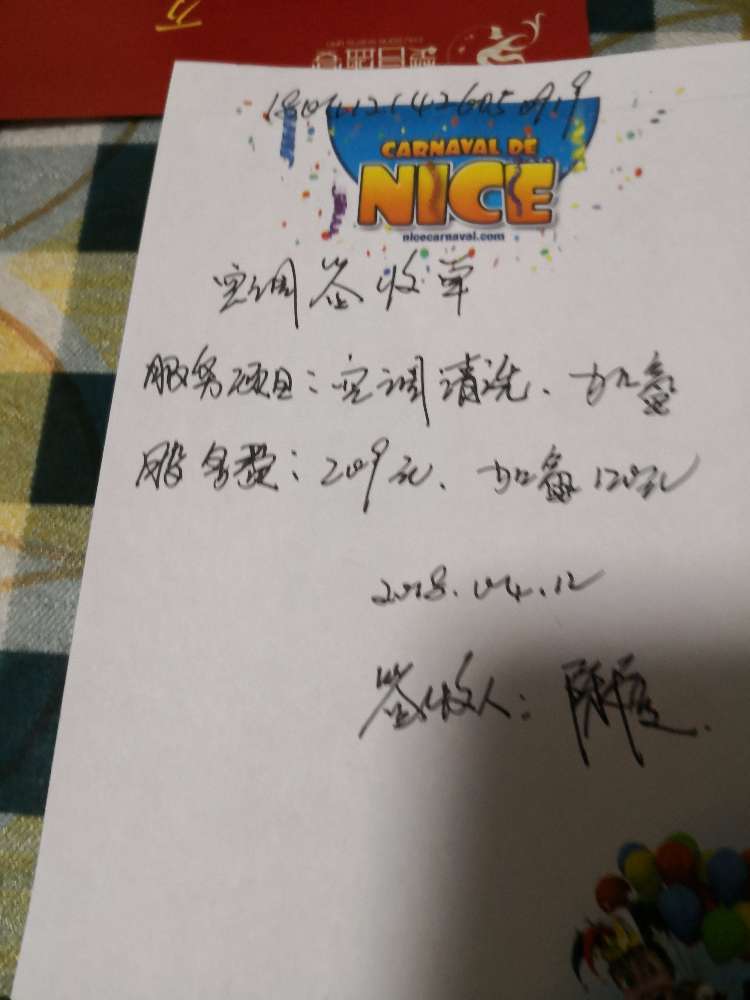 万
18041214260509.9
CARNAVAL DE
NICE
nicecarnaval.com
空调签收单
服务项目：空调清洗、加氟
服务费：209元、加氟120元
2018.04.12
签收人：